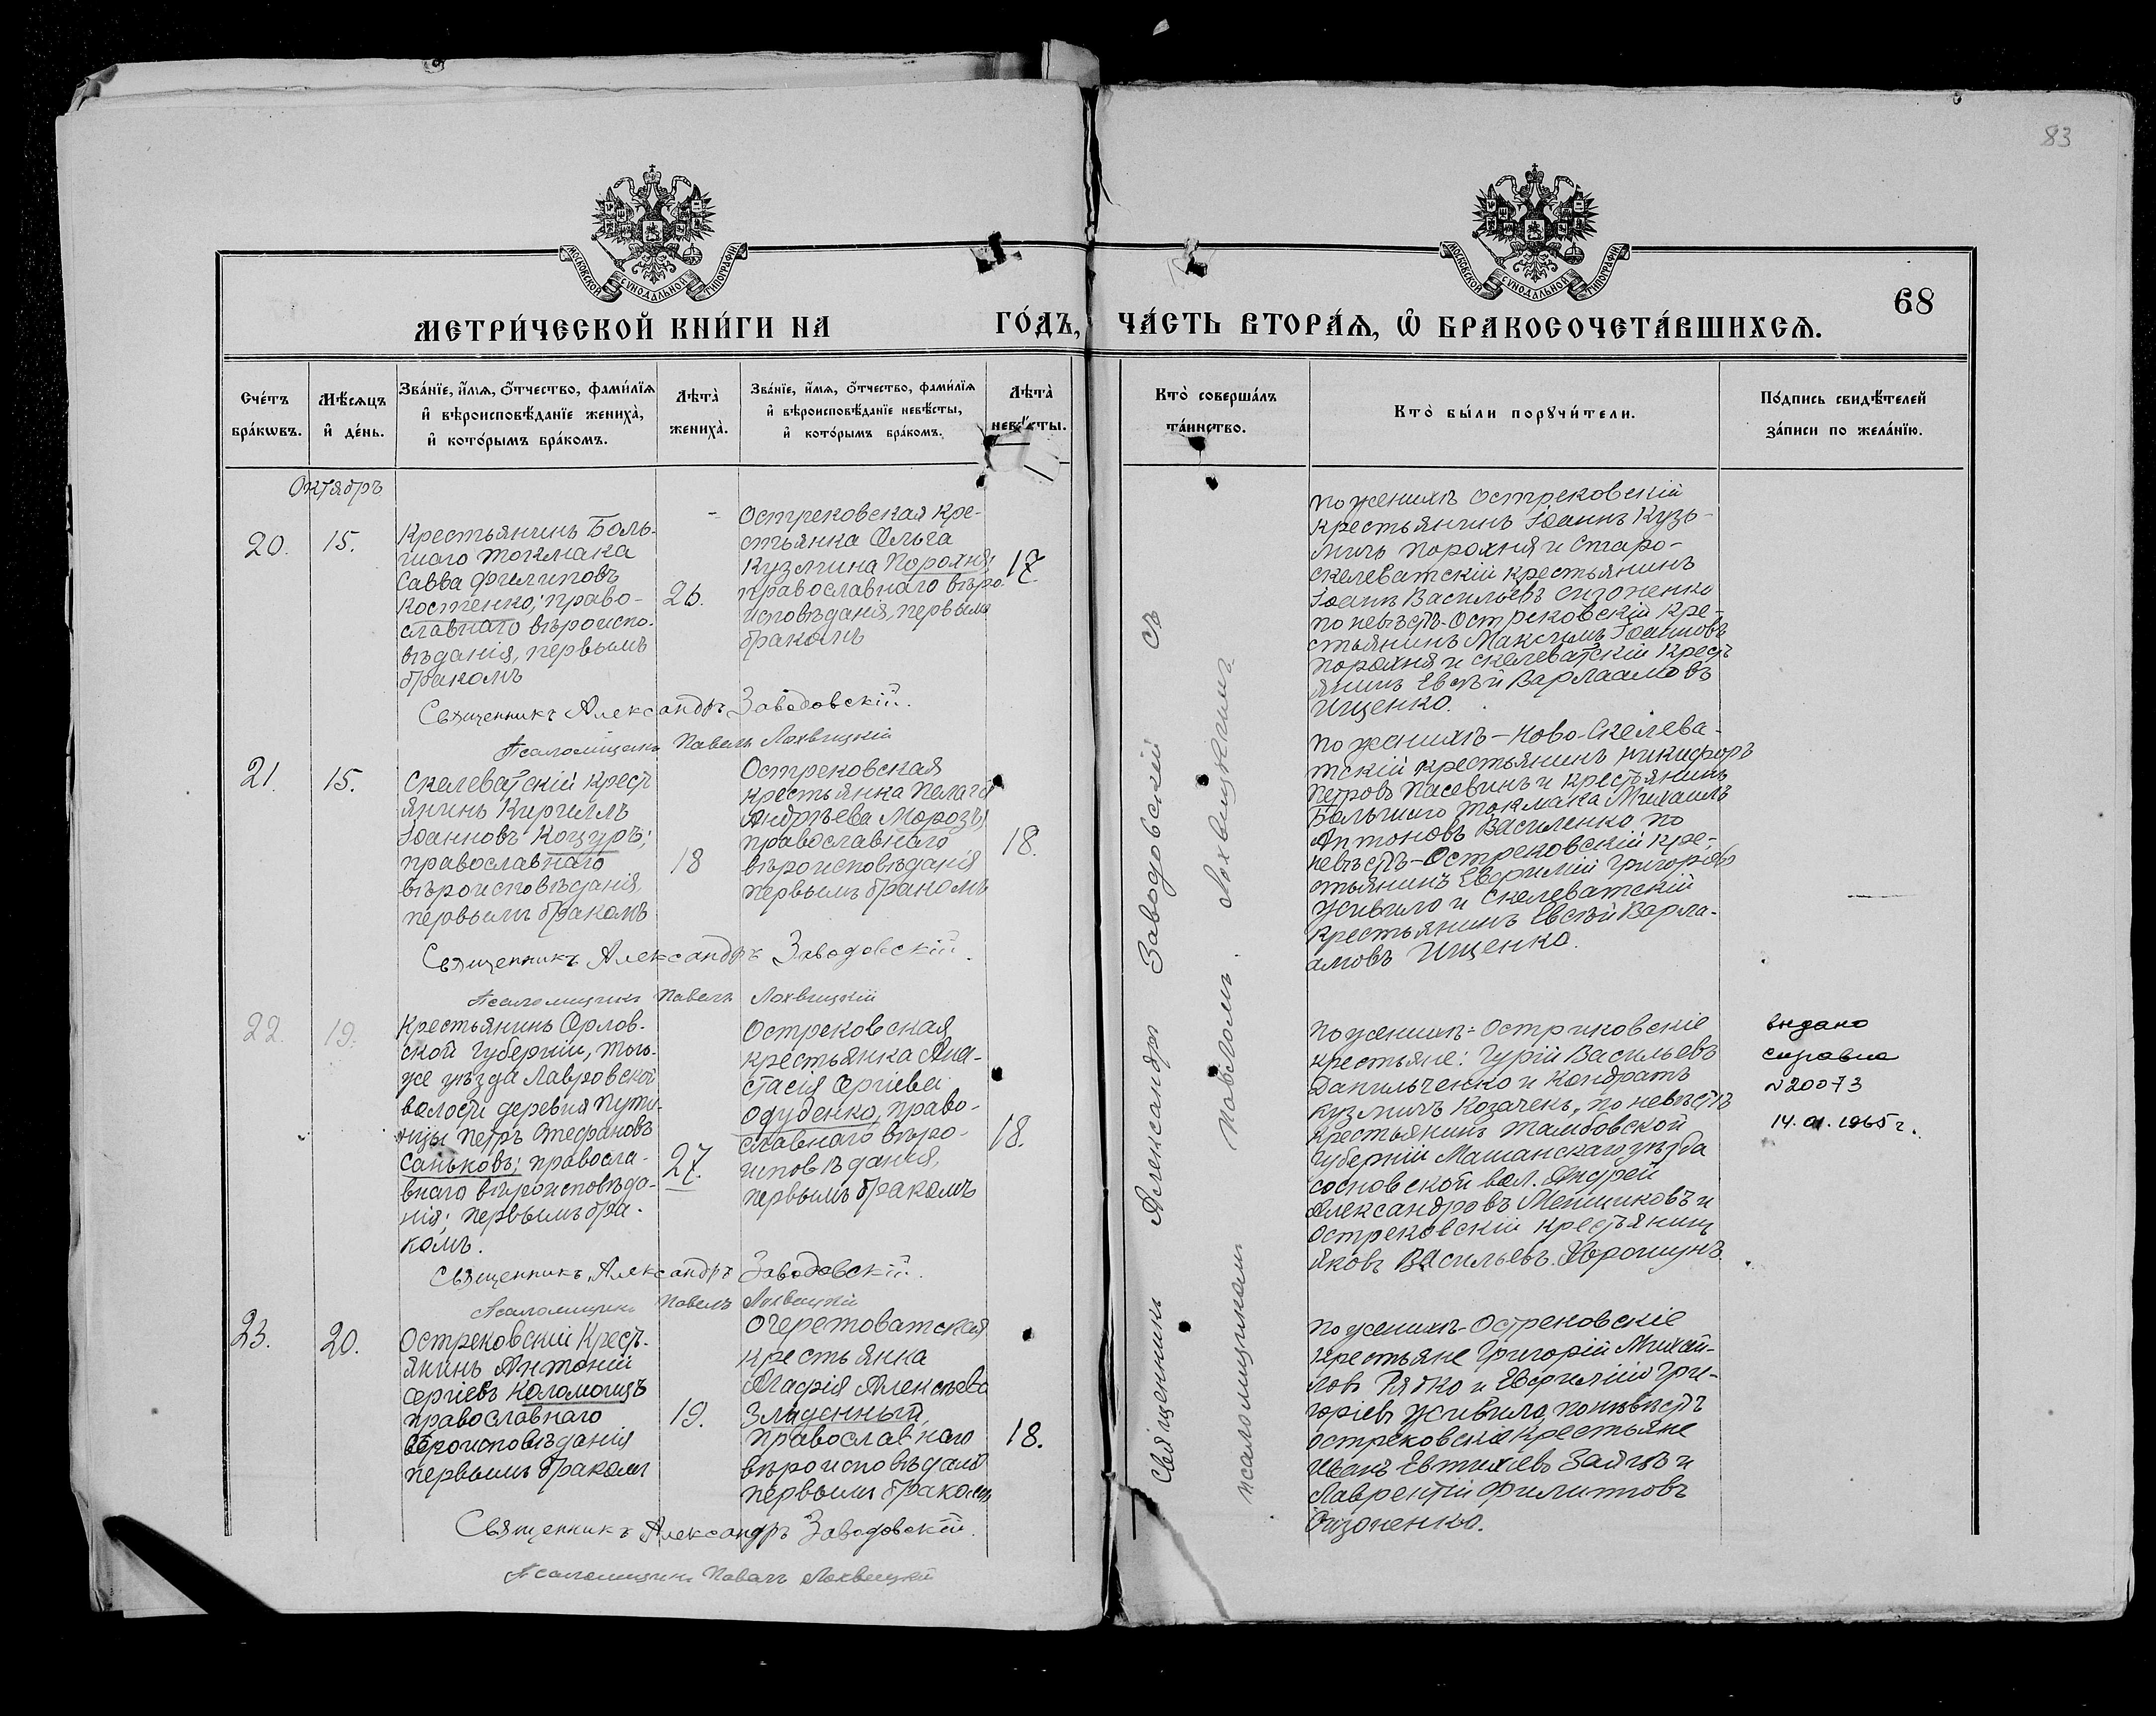 83
МОСКОВСКОЙ СѴНОДАЛЬНОЙ ТИПОГРАФІИ
МОСКОВСКОЙ СѴНОДАЛЬНОЙ ТИПОГРАФІИ
68
МЕТРИ́ЧЕСКОЙ КНИ́ГИ НА ГО́ДЪ, ЧА́СТЬ ВТОРА́Ѧ, Ѽ БРАКОСОЧЕТА́ВШИХСѦ.
Сче́тъ
бра́кѡвъ.
Мѣ́сѧцъ
и҆ де́нь.
Зва́нїе, и҆́мѧ, о҆́тчество, фами́лїѧ
и҆ вѣроисповѣ́данїе жениха̀,
и҆ кото́рымъ бра́комъ.
Лѣта̀
жениха̀.
Зва́нїе, и҆́мѧ, о҆́тчество, фами́лїѧ
и҆ вѣроисповѣ́данїе невѣ́сты,
и҆ кото́рымъ бра́комъ.
Лѣта̀
невѣ́сты.
Кто̀ соверша́лъ
та́инство.
Кто̀ бы́ли порꙋчи́тели.
По́дпись свидѣ́телей
за́писи по жела́нїю.
Октябрь
20.
15.
Крестьянинъ Боль-
шаго Токмака
Савва Филиповъ
Костенко; право-
славнаго вѣроиспо-
вѣданія, первымъ
бракомъ
26.
Острековская кре-
стьянка Ольга
Кузмина Порохня,
православнаго вѣро-
исповѣданія, первымъ
бракомъ
17.
По женихѣ Остриковскій
крестьянинъ Іоаннъ Кузь-
мичъ Порохня и Старо-
скелеватскій крестьянинъ
Іоаннъ Васильевъ Сизоненко
по невѣстѣ-Остриковскій кре-
стьянинъ Максимъ Іоанновъ
Порохня и скелеватскій крест-
янинъ Евсѣй Варлаамовъ
Ищенко.
Священникъ Александръ Заводовскій.
Псаломщикъ Павелъ Лохвицкій
21.
15.
Скелеватскій крест-
янинъ Кириллъ
Іоанновъ Коцуръ;
православнаго
вѣроисповѣданія,
первымъ бракомъ
18
Острековская
крестьянка Пелагія
Андрѣева Морозъ,
православнаго
вѣроисповѣданія
первымъ бракомъ
18.
По женихѣ-Ново-Скелева-
тскій крестьянинъ Никифоръ
Петровъ Пасевинъ и крестьянинъ
Большаго Токмака Михаилъ
Антоновъ Василенко по
невѣстѣ-Острековскій кре-
стьянинъ Евфимій Григорьевъ
Живило и Скелеватскій
крестьянинъ Евсѣй Варла-
амовъ Ищенко.
Священникъ Александръ Заводовскій.
Псаломщикъ Павелъ Лохвицкій
22.
19.
Крестьянинъ Орлов-
ской губерніи, того-
же уѣзда Лавровской
волости деревня Пути-
мцы Петръ Стефановъ
Саньковъ; правосла-
внаго вѣроисповѣда-
нія; первымъ бра-
комъ.
27.
Острековская
крестьянка Ана-
стасія Сергіева
Одуденко, право-
славнаго вѣро-
исповѣданія,
первымъ бракомъ
18.
По женихѣ-Остриковскіе
крестьяне: Гурій Васильевъ
Данильченко и Кондратъ
Кузмичъ Козаченъ, по невѣстѣ
крестьянинъ Тамбовской
губерніи Машанскаго уѣзда
сосновской вол. Андрей
Александровъ Мешиковъ и
Остриковскій крестьянинъ
Яковъ Васильевъ Хорошунъ.
видано
справка
№20073
14.01.1965 г.
Священникъ Александръ Заводовскій.
Псаломщикъ Павелъ Лохвицкій
23.
20.
Острековскій Крест-
янинъ Антоній
Сергіевъ Коломоицъ
православнаго
вѣроисповѣданія
первымъ бракомъ
19.
Очеретоватская
крестьянка
Агафія Алексѣева
Зладенный,
православнаго
вѣроисповѣданія
первымъ бракомъ
18.
По женихѣ-Острековскіе
крестьяне Григорій Михай-
ловъ Рядко и Евфимій Гри-
горіевъ Живило, по невѣстѣ
остриковскіе крестьяне
Иванъ Евтихіевъ Зайцъ и
Лаврентій Филиповъ
Сизоненко.
Священникъ Александръ Заводовскій.
Псаломщикъ Павелъ Лохвицкій
Священникъ Александръ Заводовскій съ
псаломщикомъ Павломъ Лохвицкимъ.